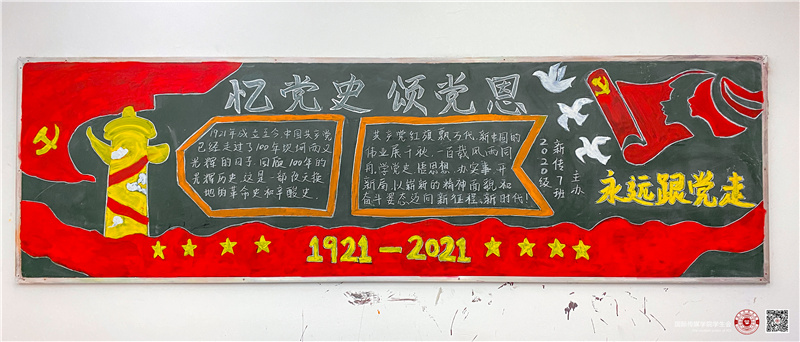 忆党史 颂党恩
1921年成立至今,中国共产党
已经走过了100年坎坷而又
光辉的日子.回顾100年的
光辉历史.这是一部改天换
地的革命史和辛酸史.
共产党红旗飘万代,新中国的
伟业展千秋.一百载风雨同
舟,学党史,悟思想,办实事,开
新局.以崭新的精神面貌和
奋斗姿态迈向新征程、新时代!
2020级
新传7班
主办
永远跟党走
1921—2021